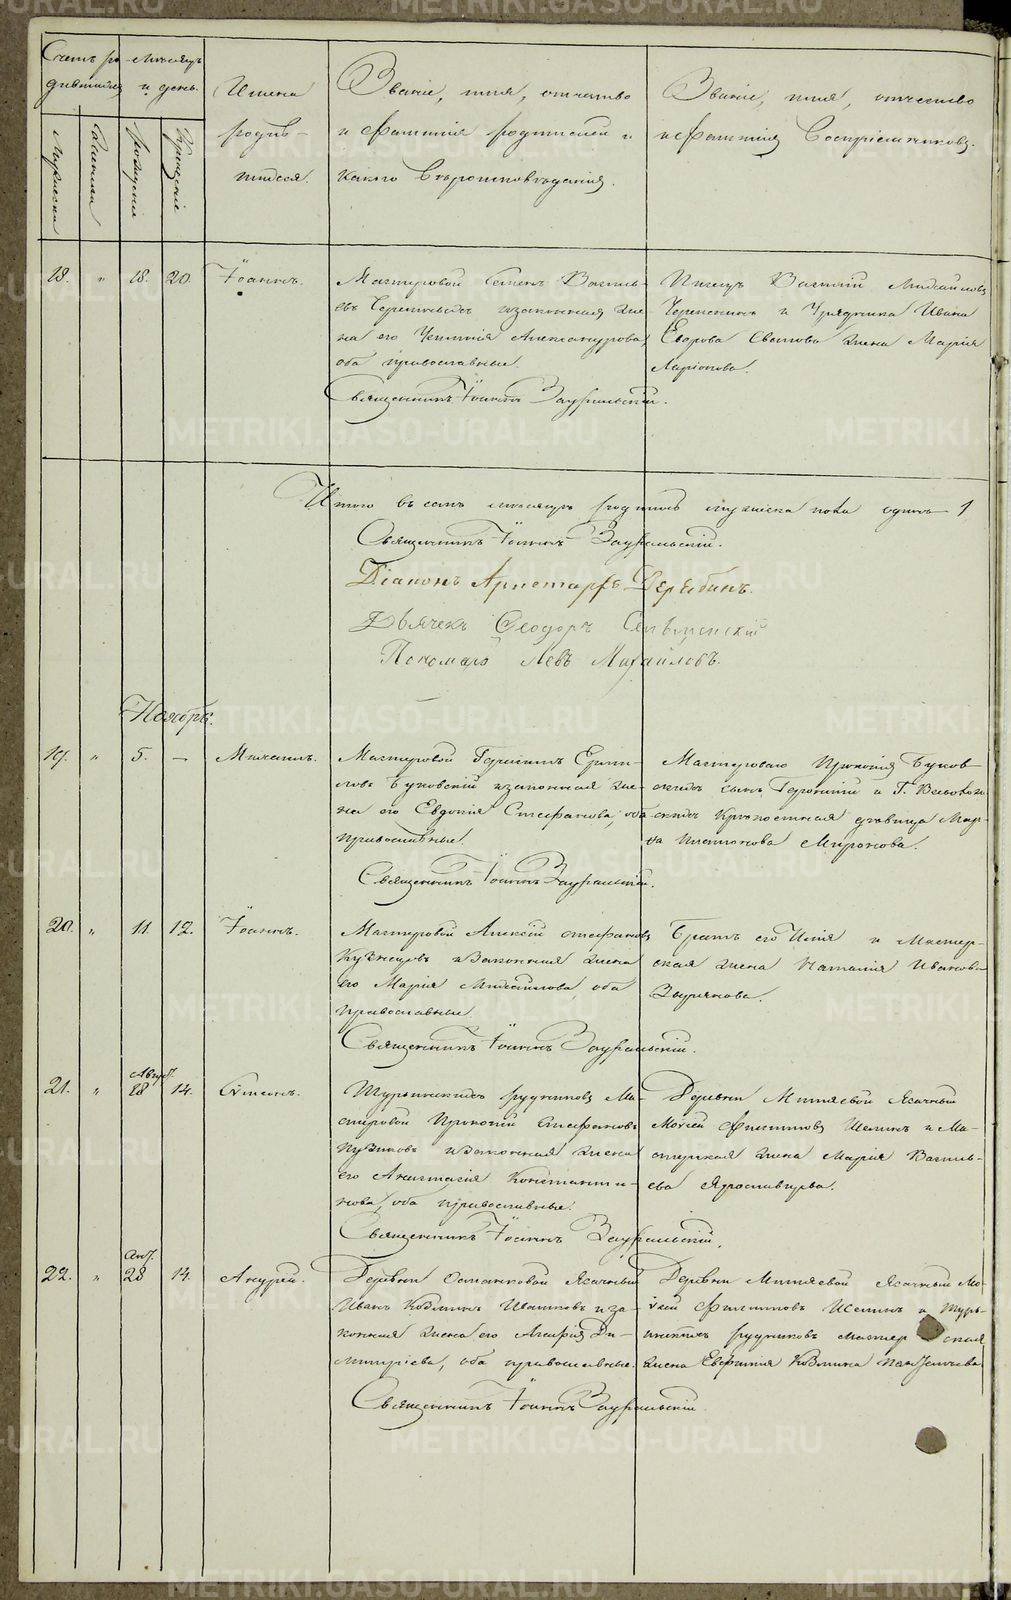 Счетъ ро-
дившихся
Мѣсяцъ
и день.
Имена
родив-
шихся.
Званіе, имя, отчество
и фамилія родителей и
какого вѣроисповѣданія.
Званіе, имя, отчество
и фамилія воспріемниковъ.
Мужеска
Женска
Рожденія
Крещенія
18. " 18. 20. Іоаннъ.
Мастеровой Семенъ Василь-
евъ и законная же-
на его Александрова,
оба православные.
Священникъ Іоаннъ Зауральскій.
Писецъ Василій Михайловъ
Черепанинъ и Урядника Ивана
Егорова жена Марія
Ларіонова.
Итого въ семъ мѣсяцѣ родилось мужеска пола одинъ 1
Священникъ Іоаннъ Зауральскій.
Діаконъ Аристархъ Дерябинъ.
Дьячекъ Ѳеодоръ
Пономарь Левъ Михайловъ.
Ноябрь.
19. " 5. — Михаилъ.
Мастеровой Герасимъ Ерми-
ловъ Буковскій и законная же-
на его Евдокія Стефанова, оба
православные.
Священникъ Іоаннъ Зауральскій.
Мастероваго Прокопія Буков-
скаго сынъ и Г.
крѣпостная дѣвица Мар-
Платонова Миронова.
20. " 11. 12. Іоаннъ.
Мастеровой Алексій Стефановъ
Кузнецовъ и законная жена
его Марія Михайлова, оба
православные.
Священникъ Іоаннъ Зауральскій.
Братъ его Илія и Мастер-
ская жена Наталія Иванова
Зырянова.
21. " Август. 28 14. Сѵмеонъ.
Турьинскихъ рудниковъ Ма-
стеровой Прокопій Стефановъ
Пузиковъ и законная жена
его Анастасія Константи-
нова, оба православные.
Священникъ Іоаннъ Зауральскій.
Деревни Митяевой Ясачный
Мокей Филипповъ Шелинъ и Ма-
стерская жена Марія Василь-
ева Ярославцева.
22. " Авг. 28 14. Андрей.
Деревни Останковой Ясачный
Иванъ Козминъ Ивашковъ и за-
конная жена его Агафія Ди-
митріева, оба православные.
Священникъ Іоаннъ Зауральскій.
Деревни Митяевой Ясачный Мо-
кей Филипповъ Шелинъ и Турь-
инскихъ рудниковъ мастерская
жена Евфимія Козмина